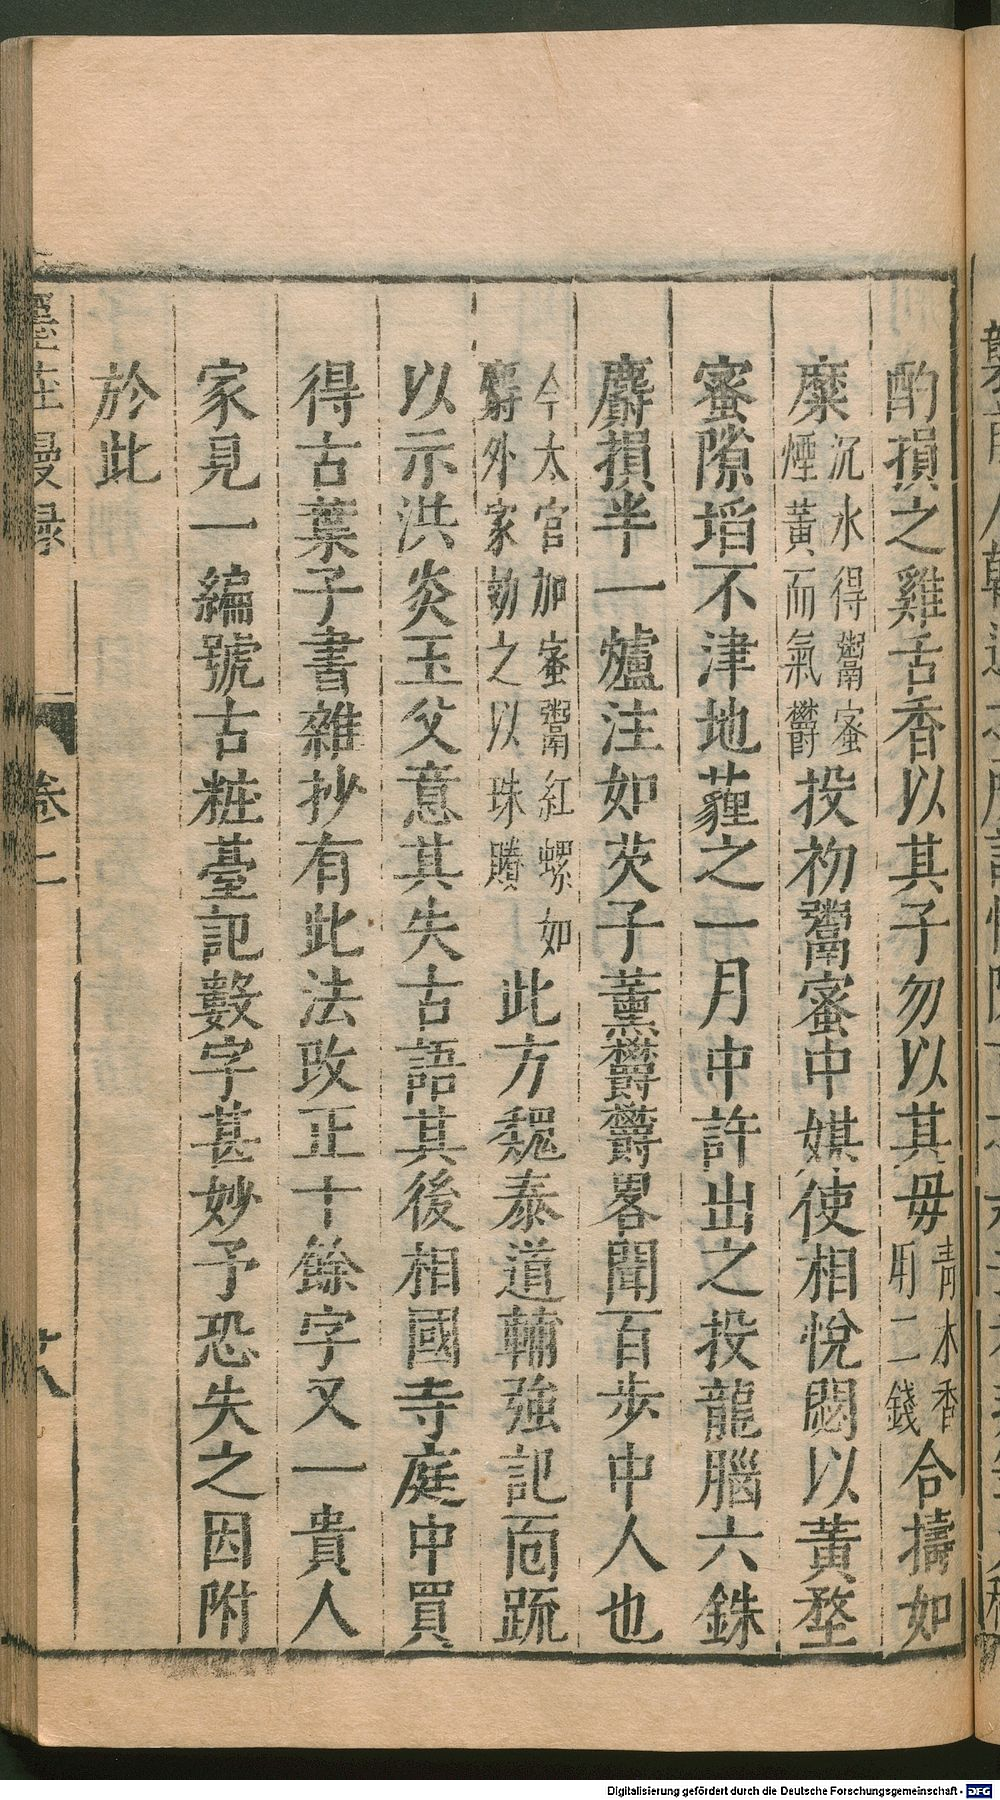 酌損之雞舌香以其子勿以其毋青木香用二錢合擣如
糜沉水得鬻蜜煙黃而氣欝投初鬻蜜中媒使相悅閟以黃堥
蜜隙墖不津地薶之一月中許出之投龍腦六銖
麝損半一爐注如芡子薰欝欝畧聞百步中人也
今太官加蜜鬻紅螺如麝外家効之以珠賸此方魏泰道輔強記面疏
以示洪炎玉父意其失古語其後相國寺庭中買
得古葉子書雜抄有此法改正十餘字又一貴人
家見一編號古粧臺記數字甚妙予恐失之因附
於此
墨莊漫録
卷二
Digitalisierung gefördert durch die Deutsche Forschungsgemeinschaft - DFG